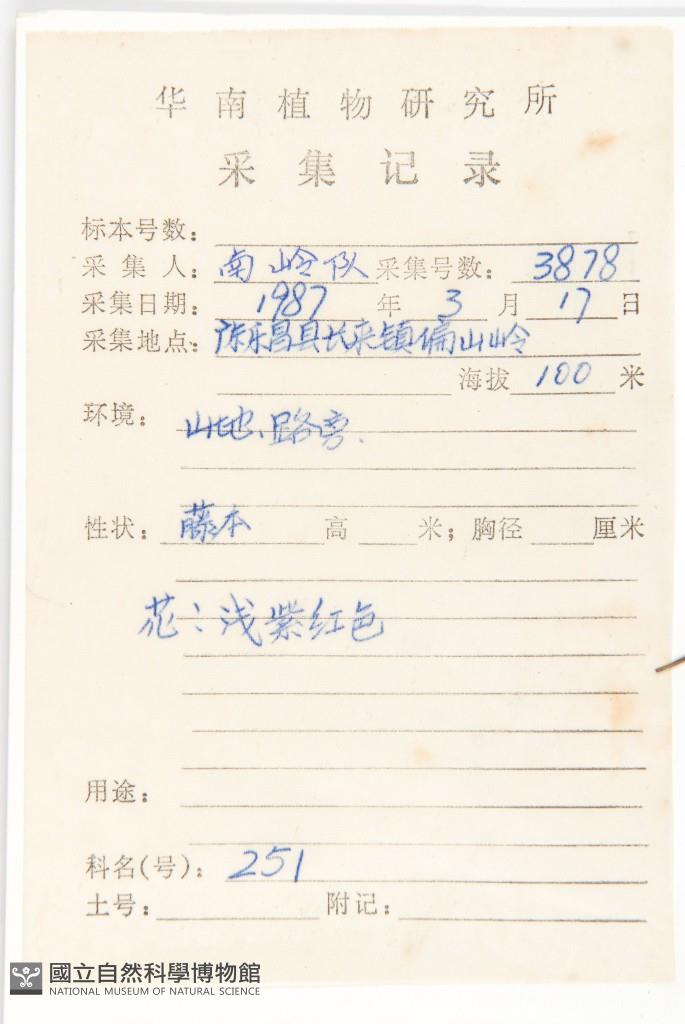 华南植物研究所
采集记录
标本号数：
采集人：南岭队 采集号数：3878
采集日期：1987年3月17日
采集地点：乐昌县长来镇偏山岭
海拔 100 米
环境：山地、路旁.
性状：藤本 高 米；胸径 厘米
花：浅紫红色
用途：
科名(号)：251
土号： 附记：
國立自然科學博物館
NATIONAL MUSEUM OF NATURAL SCIENCE